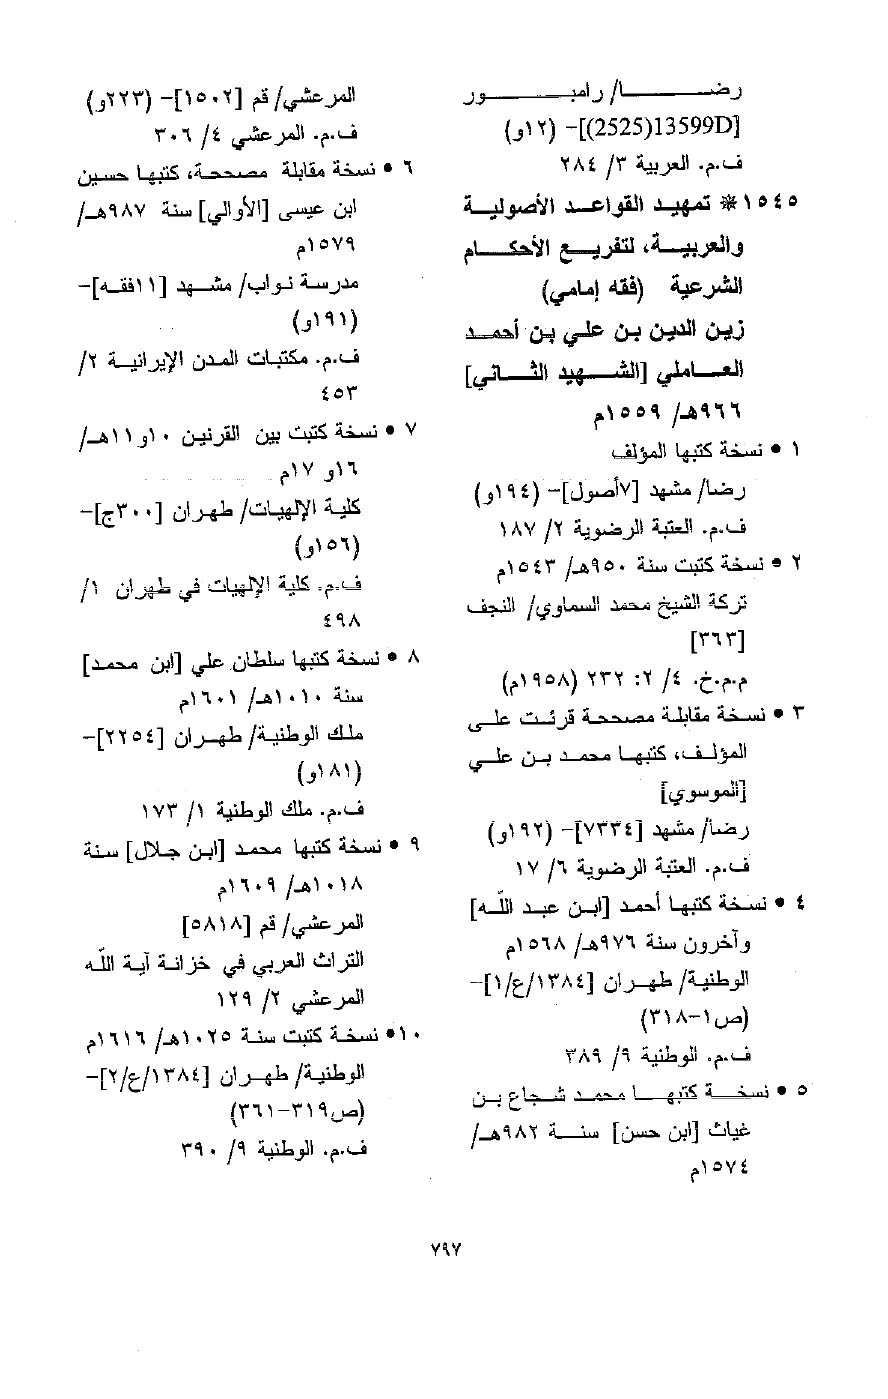 رضا/ رامبور
[13599D(2525)]- (١٢و)
ف.م. العربية ٣/ ٢٨٤
١٥٤٥ * تمهيد القواعد الأصولية
والعربية، لتفريع الأحكام
الشرعية (فقه إمامي)
زين الدين بن علي بن أحمد
العاملي [الشهيد الثاني]
٩٦٦هـ/ ١٥٥٩م
١ • نسخة كتبها المؤلف
رضا/ مشهد [٧أصول]- (١٩٤و)
ف.م. العتبة الرضوية ٢/ ١٨٧
٢ • نسخة كتبت سنة ٩٥٠هـ/ ١٥٤٣م
تركة الشيخ محمد السماوي/ النجف
[٣٦٣]
م.م.خ. ٤/ ٢: ٢٣٢ (١٩٥٨م)
٣ • نسخة مقابلة مصححة قرئت على
المؤلف، كتبها محمد بن علي
[الموسوي]
رضا/ مشهد [٧٣٣٤]- (١٩٢و)
ف.م. العتبة الرضوية ٦/ ١٧
٤ • نسخة كتبها أحمد [ابن عبد اللّه]
وآخرون سنة ٩٧٦هـ/ ١٥٦٨م
الوطنية/ طهران [١٣٨٤/ع/١]-
(ص١-٣١٨)
ف.م. الوطنية ٩/ ٣٨٩
٥ • نسخة كتبها محمد شجاع بن
غياث [ابن حسن] سنة ٩٨٢هـ/
١٥٧٤م
المرعشي/ قم [١٥٠٢]- (٢٢٣و)
ف.م. المرعشي ٤/ ٣٠٦
٦ • نسخة مقابلة مصححة، كتبها حسين
ابن عيسى [الأوالي] سنة ٩٨٧هـ/
١٥٧٩م
مدرسة نواب/ مشهد [١١فقه]-
(١٩١و)
ف.م. مكتبات المدن الإيرانية ٢/
٤٥٣
٧ • نسخة كتبت بين القرنين ١٠و١١هـ/
١٦و ١٧م
كلية الإلهيات/ طهران [٣٠٠ج]-
(١٥٦و)
ف.م. كلية الإلهيات في طهران ١/
٤٩٨
٨ • نسخة كتبها سلطان علي [ابن محمد]
سنة ١٠١٠هـ/ ١٦٠١م
ملك الوطنية/ طهران [٢٢٥٤]-
(١٨١و)
ف.م. ملك الوطنية ١/ ١٧٣
٩ • نسخة كتبها محمد [ابن جلال] سنة
١٠١٨هـ/ ١٦٠٩م
المرعشي/ قم [٥٨١٨]
التراث العربي في خزانة آية اللّه
المرعشي ٢/ ١٢٩
١٠• نسخة كتبت سنة ١٠٢٥هـ/ ١٦١٦م
الوطنية/ طهران [١٣٨٤/ع/٢]-
(ص٣١٩-٣٦١)
ف.م. الوطنية ٩/ ٣٩٠
٧٩٧